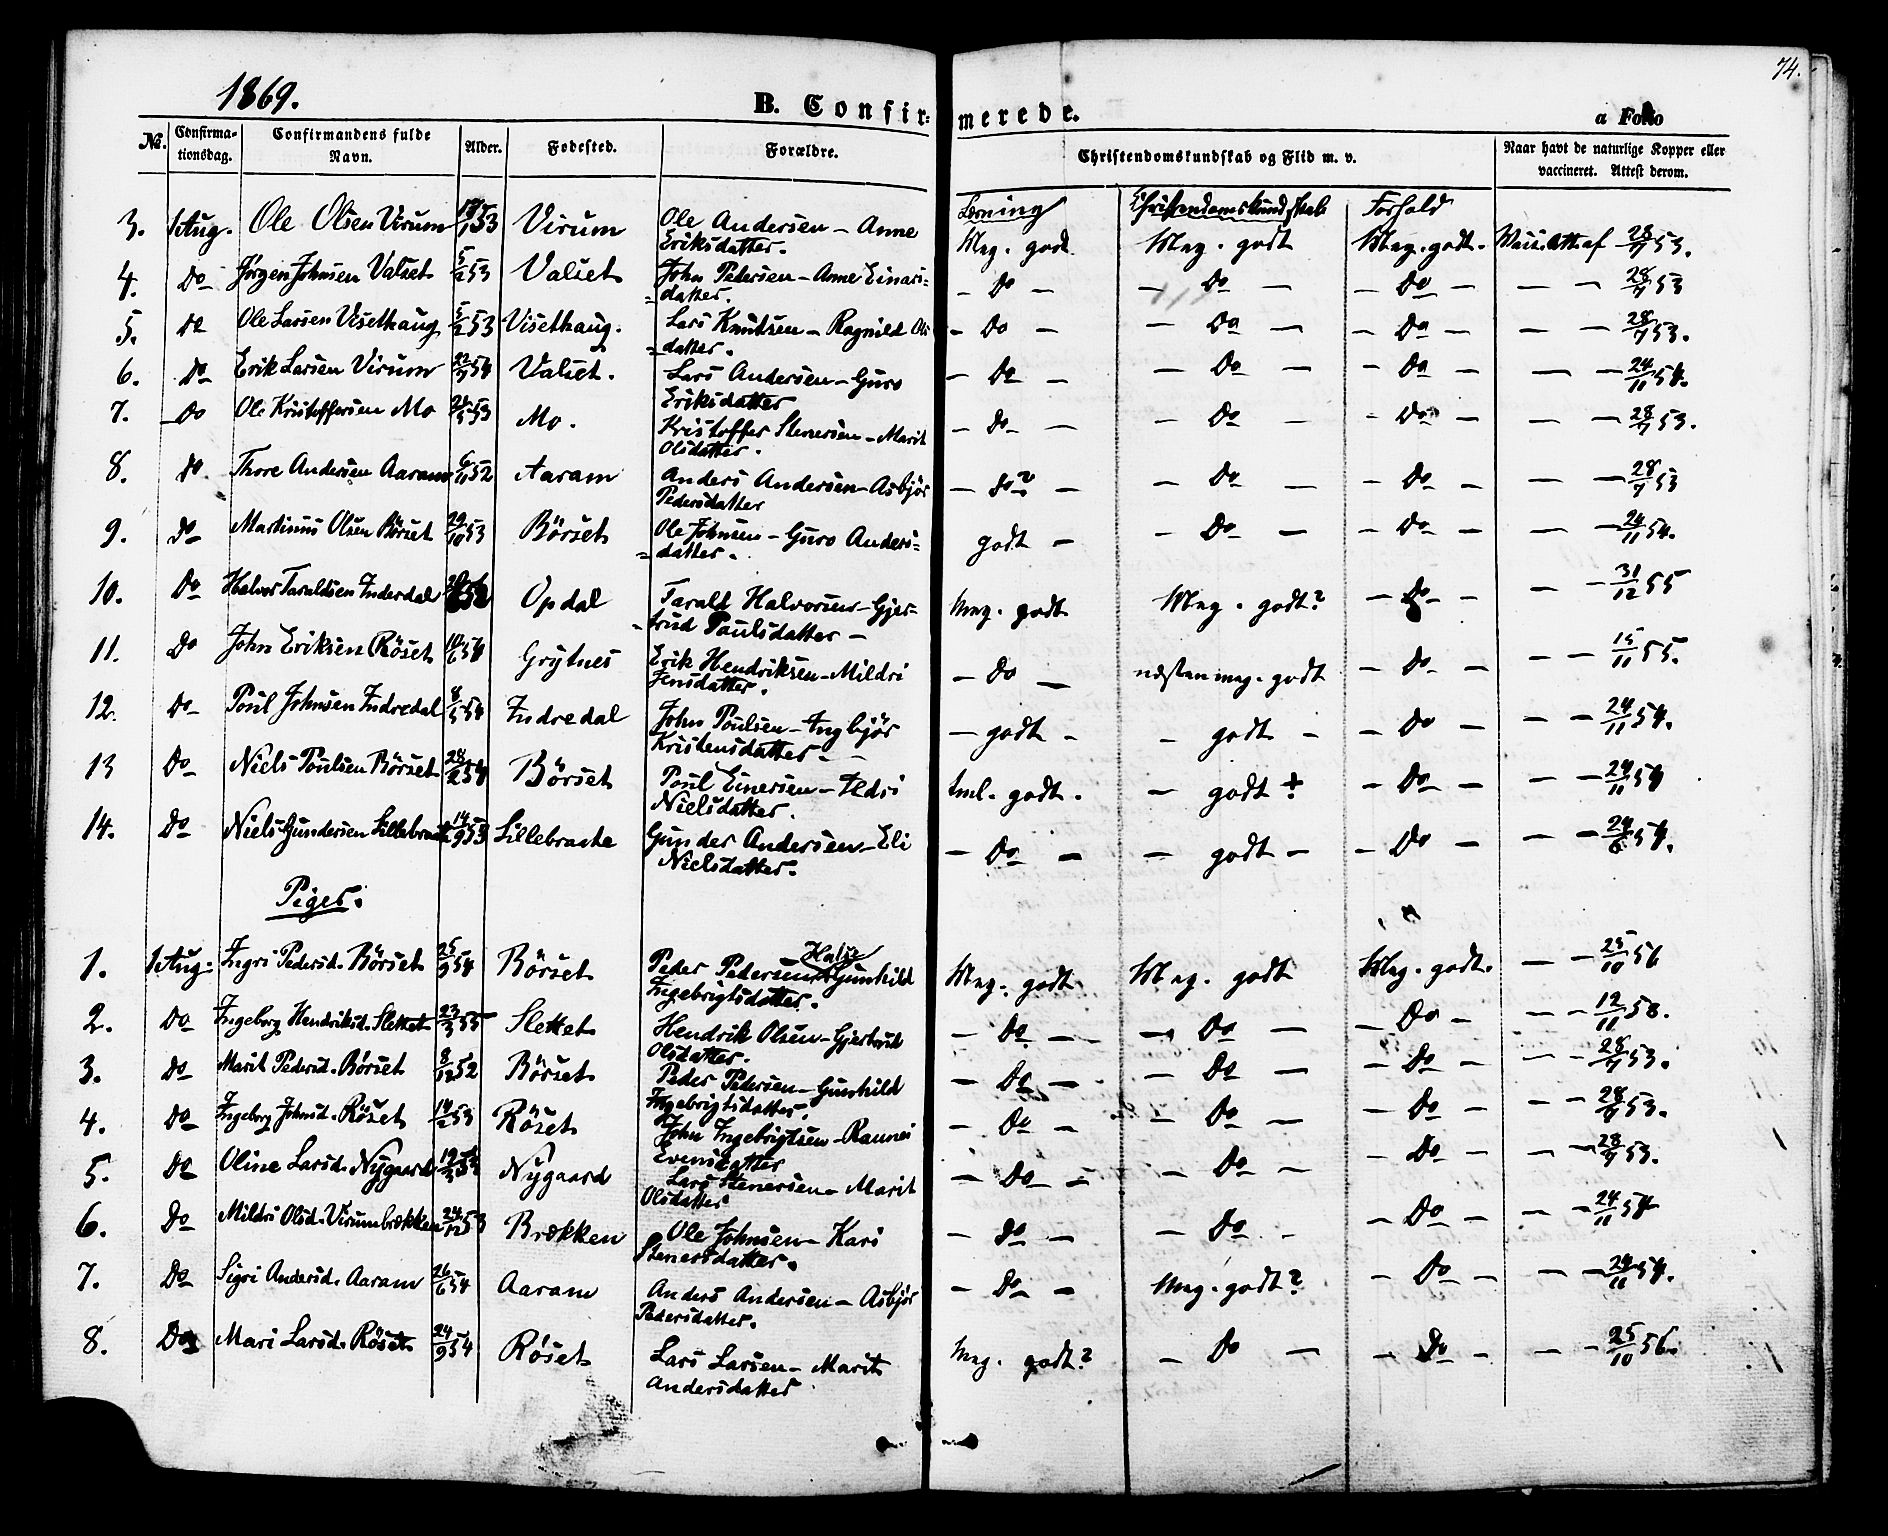 74.
1869.
B. Confirmerede.
a Folio
No. Confirmationsdag. Confirmandens fulde Navn. Alder. Fødested. Forældre. Christendomskundskab og Flid m. v. Naar havt de naturlige Kopper eller vaccineret. Attest derom.
Læsning Christendomskundskab Forhold
3. 1 Aug. Ole Olsen Virum 53 Virum Ole Andersen – Anne Eriksdatter. Meg. godt Meg. godt Meg. godt. 28/7 53.
4. Do Jørgen Johnsen Valset 5/2 53 Valset John Pedersen – Anne Einars=datter. – Do – – Do – – Do – – – 28/7 53
5. Do Ole Larsen Visethaug 5/2 53 Visethaug. Lars Knutsen – Ragnild Ols=datter. – Do – – Do – – Do – – – 28/7 53.
6. Do Erik Larsen Virum 54 Valset. Lars Andersen – Guro Eriksdatter – Do – – Do – – Do – – – 24/11 54.
7. Do Ole Kristoffersen Mo 53 Mo. Kristoffer Stenersen – Marit Olsdatter. – Do – – Do – – Do – – – 28/7 53.
8. Do Thore Andersen Aaram 52 Aaram Anders Andersen – Asbjør Pedersdatter – Do? – – Do – – Do – – – 28/7 53
9. Do Martinus Olsen Börset 29/10 53 Börset Ole Johnsen – Guro Anders=datter. godt – – Do – – Do – – – 24/11 54.
10. Do Halvor Taraldsen Inderdal Opdal Tarald Halvorsen – Gjertrud Paulsdatter – Meg. godt Meg. godt? – Do – – – 31/12 55
11. Do John Eriksen Röset 14/6 54 Grytnes Erik Hendriksen – Mildri Jensdatter. – Do – næsten meg. godt – Do – – – 15/11 55.
12. Do Poul Johnsen Indredal 8/5 54 Indredal John Poulsen – Ingbjör Kristensdatter – – godt – – godt – – Do – – – 24/11 54.
13 Do Niels Poulsen Börset 28/2 54 Börset Poul Einersen – Ildri Nielsdatter. tml. godt. – godt +? – Do – – – 24/11 54
14. Do Niels Gundersen Lillebraate 14/9 53 Lillebraate Gunder Andersen – Eli Nielsdatter. – Do – – godt – – Do – – – 24/6 54.
Piger.
1. 1 Aug. Ingri Pedersd. Börset 25/9 54 Börset Peder Pedersen Halse – Gunhild Ingebrigtsdatter. Meg. godt Meg. godt Meg. godt. – – 25/10 56
2. Do Ingeborg Hendriksd. Slettet 23/3 55 Slettet Hendrik Olsen – Gjertrud Olsdatter. – Do – – Do – – Do – – – 12/11 58.
3. Do Marit Pedersd. Börset 8/12 52 Börset Peder Pedersen – Gunhild Ingebrigtsdatter. – Do – – Do – – Do – – – 28/7 53.
4. Do Ingeborg Johnsd. Röset 14/2 53 Röset John Ingebrigtsen – Raunei Evensdatter – Do – – Do – – Do – – – 28/7 53.
5. Do Oline Larsd. Nygaard Nygaard Lars Stenersen – Marit Olsdatter – Do – – Do – – Do – – – 28/7 53.
6. Do Mildri Olsd. Virumbrækken 24/12 53 Brækken Ole Johnsen – Kari Stenersdatter. – Do – – Do – – Do – – – 24/11 54
7. Do Sigri Andersd. Aaram 26/6 54 Aaram Anders Andersen – Asbjör Pedersdatter. – Do – Meg. godt? – Do – – – 24/11 54.
8. Do Mari Larsd. Röset 24/9 54 Röset Lars Larsen – Marit Andersdatter Meg. godt? – Do – – Do – – – 25/10 56.